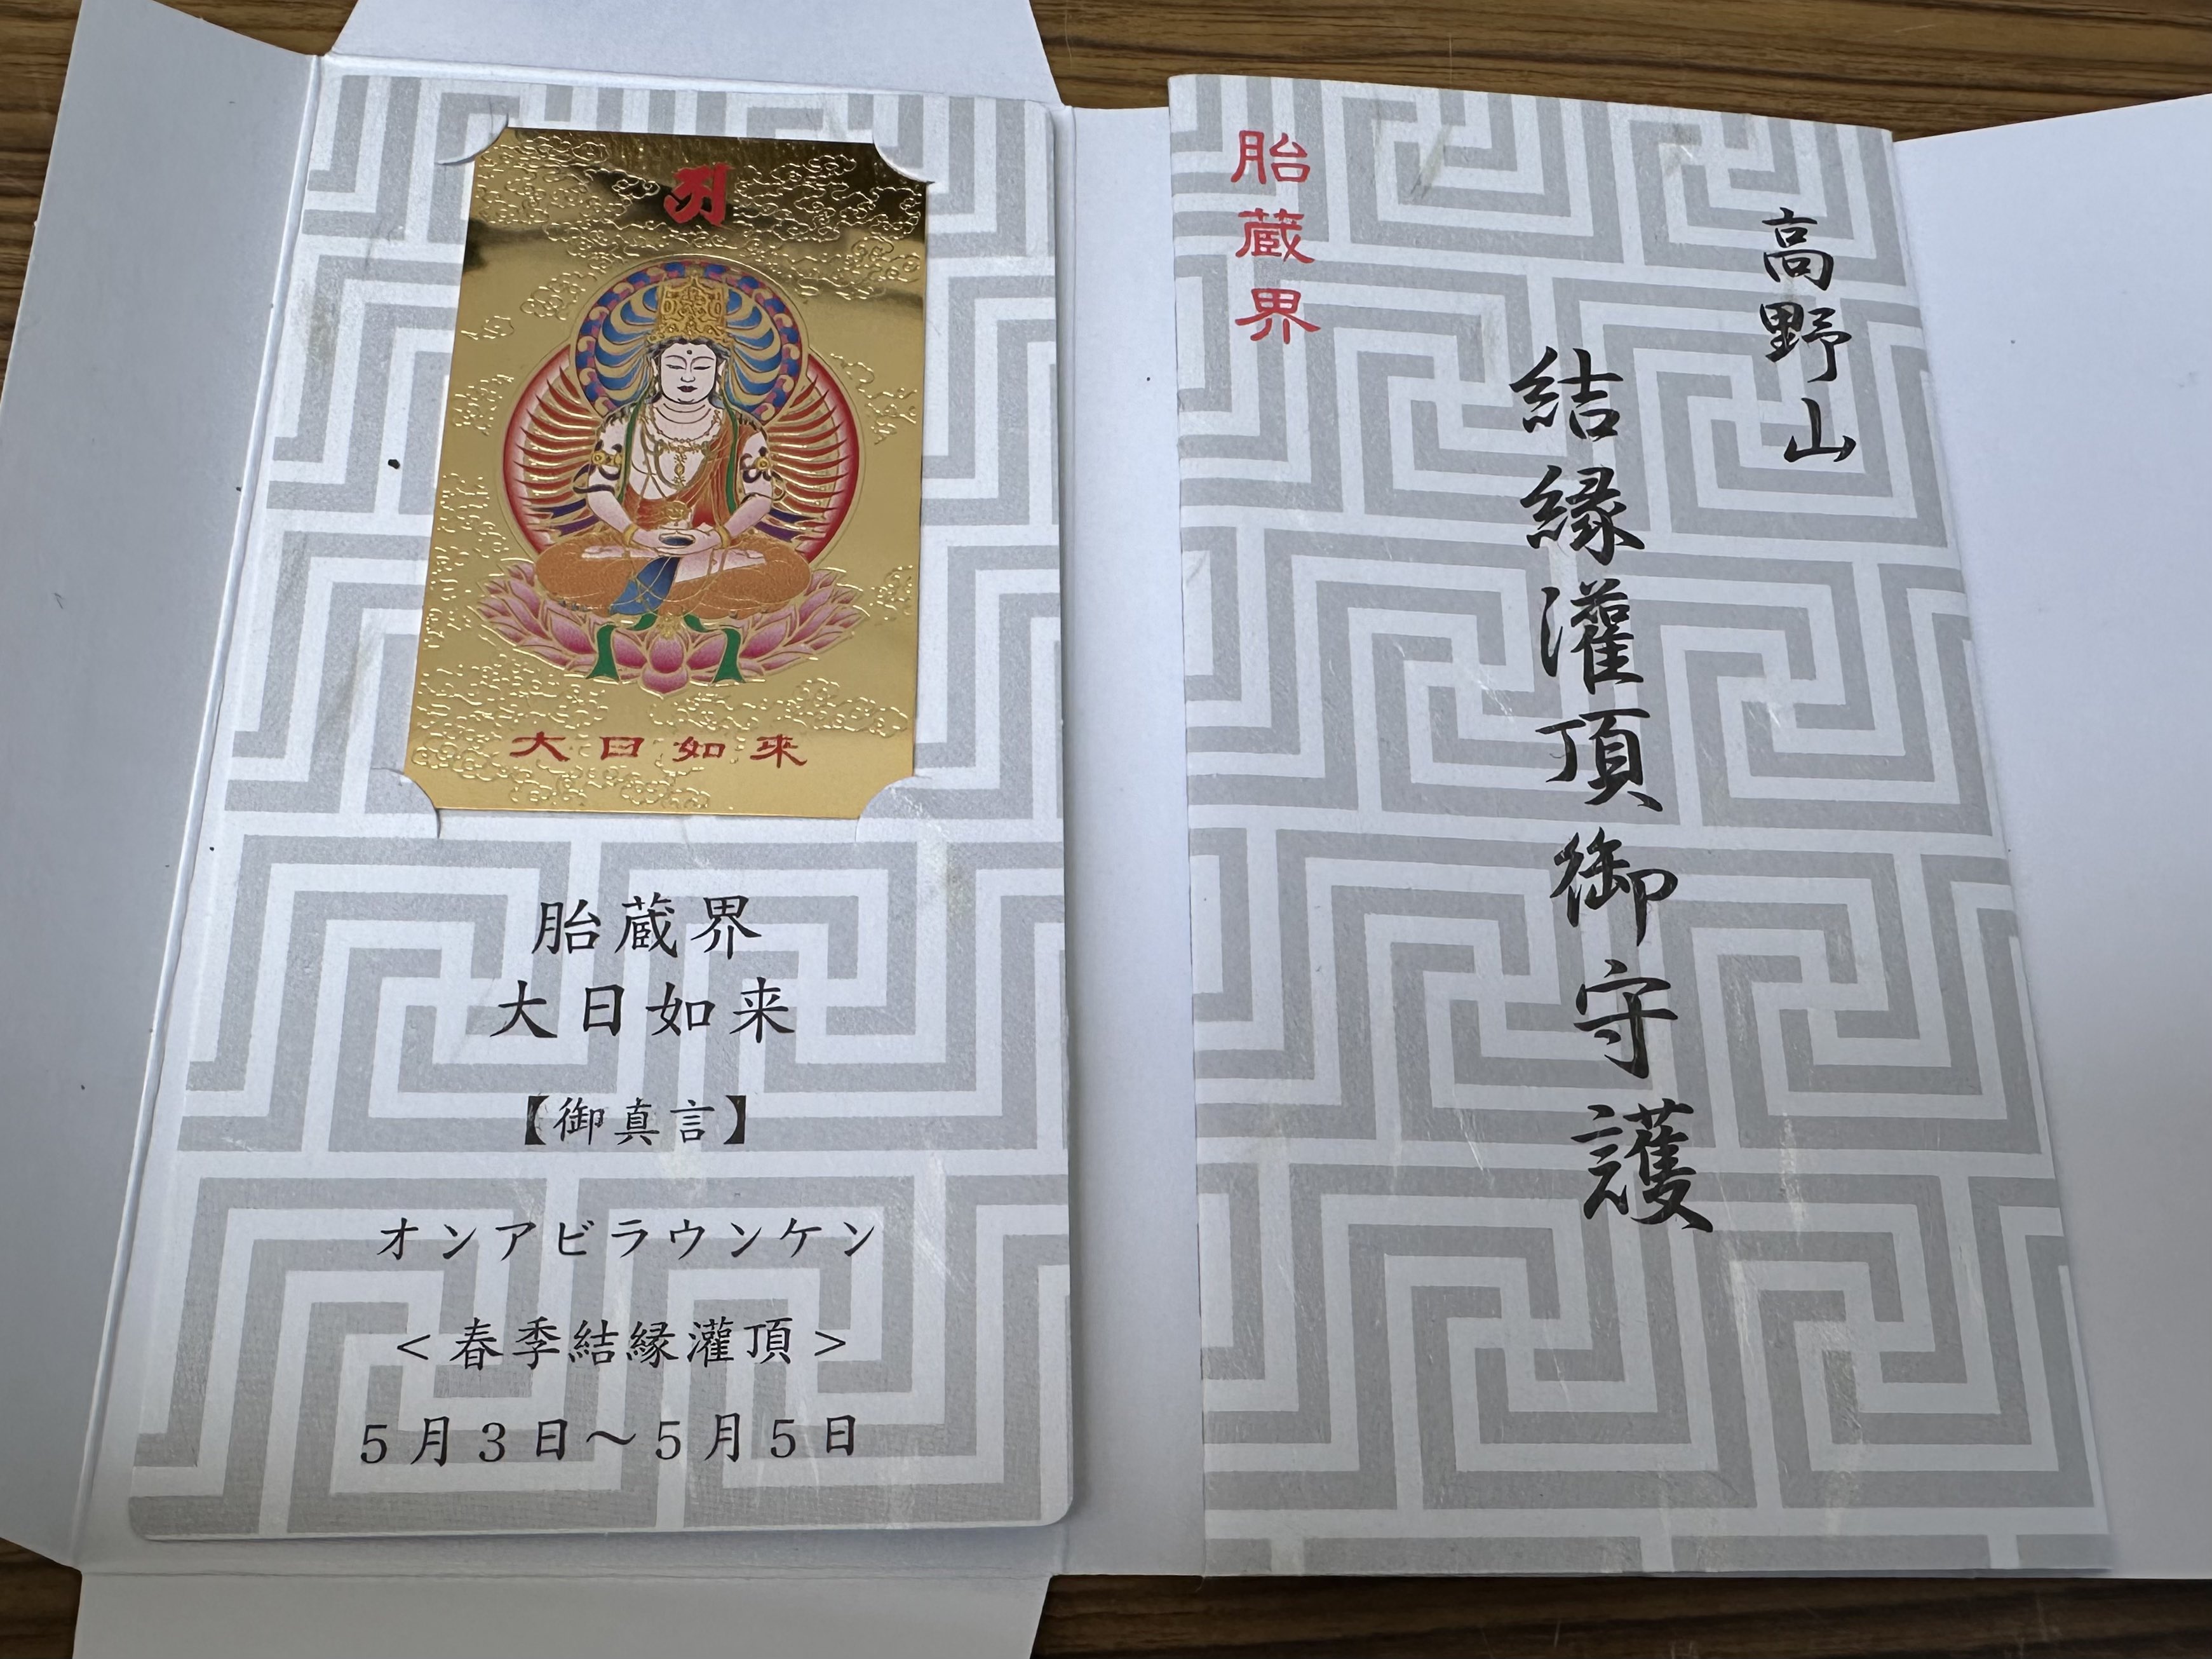 大日如来
胎蔵界
大日如来
【御真言】
オンアビラウンケン
<春季結縁灌頂>
5月3日～5月5日
高野山
結縁灌頂御守護
胎蔵界